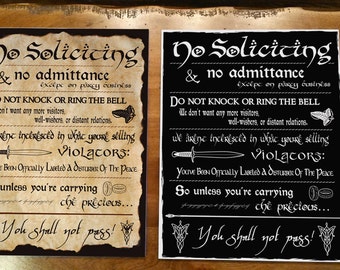 No Soliciting
& no admittance
except on party business
Do not knock or ring the bell
We don't want any more visitors,
well-wishers, or distant relations.
we aren't interested in what you're selling
Violators:
You've Been Officially Labeled A Disturber Of The Peace
So unless you're carrying
the precious...
You shall not pass!
No Soliciting
& no admittance
except on party business
Do not knock or ring the bell
We don't want any more visitors,
well-wishers, or distant relations.
we aren't interested in what you're selling
Violators:
You've Been Officially Labeled A Disturber Of The Peace
So unless you're carrying
the precious...
You shall not pass!